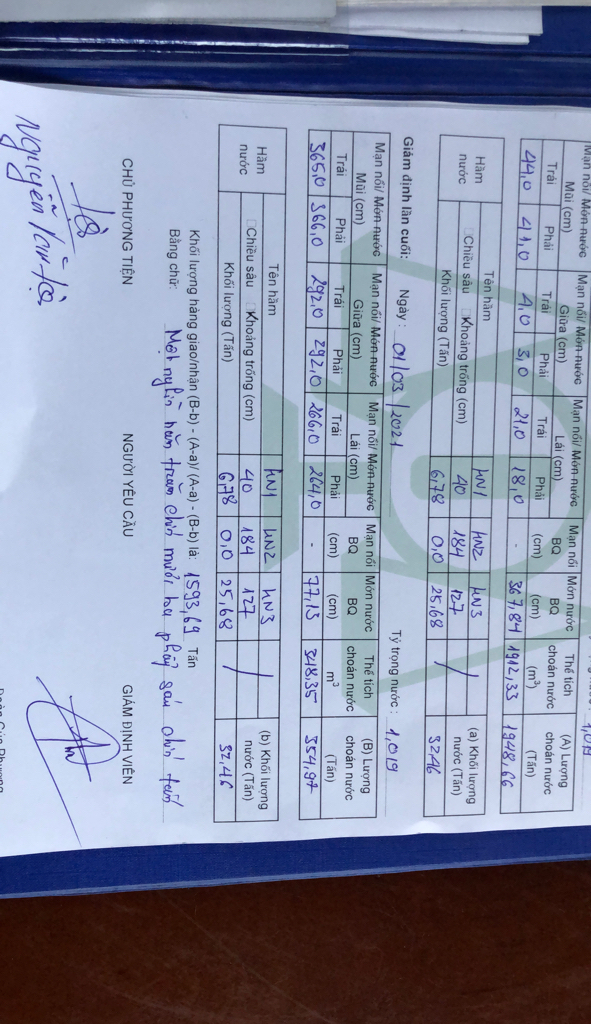 1,019
Mạn nổi/ Món nước Mũi (cm) Mạn nổi/ Món nước Giữa (cm) Mạn nổi/ Món nước Lái (cm) Mạn nổi BQ (cm) Món nước BQ (cm) Thể tích choán nước (m³) (A) Lượng choán nước (Tấn)
Trái Phải Trái Phải Trái Phải
44,0 41,0 4,0 3,0 21,0 18,0 - 367,84 1912,33 1948,66
Hầm nước Tên hầm HN1 HN2 HN3 / (a) Khối lượng nước (Tấn)
□Chiều sâu □Khoảng trống (cm) 40 184 127
Khối lượng (Tấn) 6,78 0,0 25,68 32,46
Giám định lần cuối: Ngày : 01/03/2021 Tỷ trọng nước : 1,019
Mạn nổi/ Món nước Mũi (cm) Mạn nổi/ Món nước Giữa (cm) Mạn nổi/ Món nước Lái (cm) Mạn nổi BQ (cm) Món nước BQ (cm) Thể tích choán nước m³ (B) Lượng choán nước (Tấn)
Trái Phải Trái Phải Trái Phải
365,0 366,0 292,0 292,0 266,0 264,0 - 77,13 348,35 354,97
Hầm nước Tên hầm HN1 HN2 HN3 / (b) Khối lượng nước (Tấn)
□Chiều sâu □Khoảng trống (cm) 40 184 127
Khối lượng (Tấn) 6,78 0,0 25,68 32,46
Khối lượng hàng giao/nhận (B-b) - (A-a)/ (A-a) - (B-b) là: 1593,69 Tấn
Bằng chữ: Một nghìn năm trăm chín mươi ba phẩy sáu chín tấn
CHỦ PHƯƠNG TIỆN NGƯỜI YÊU CẦU GIÁM ĐỊNH VIÊN